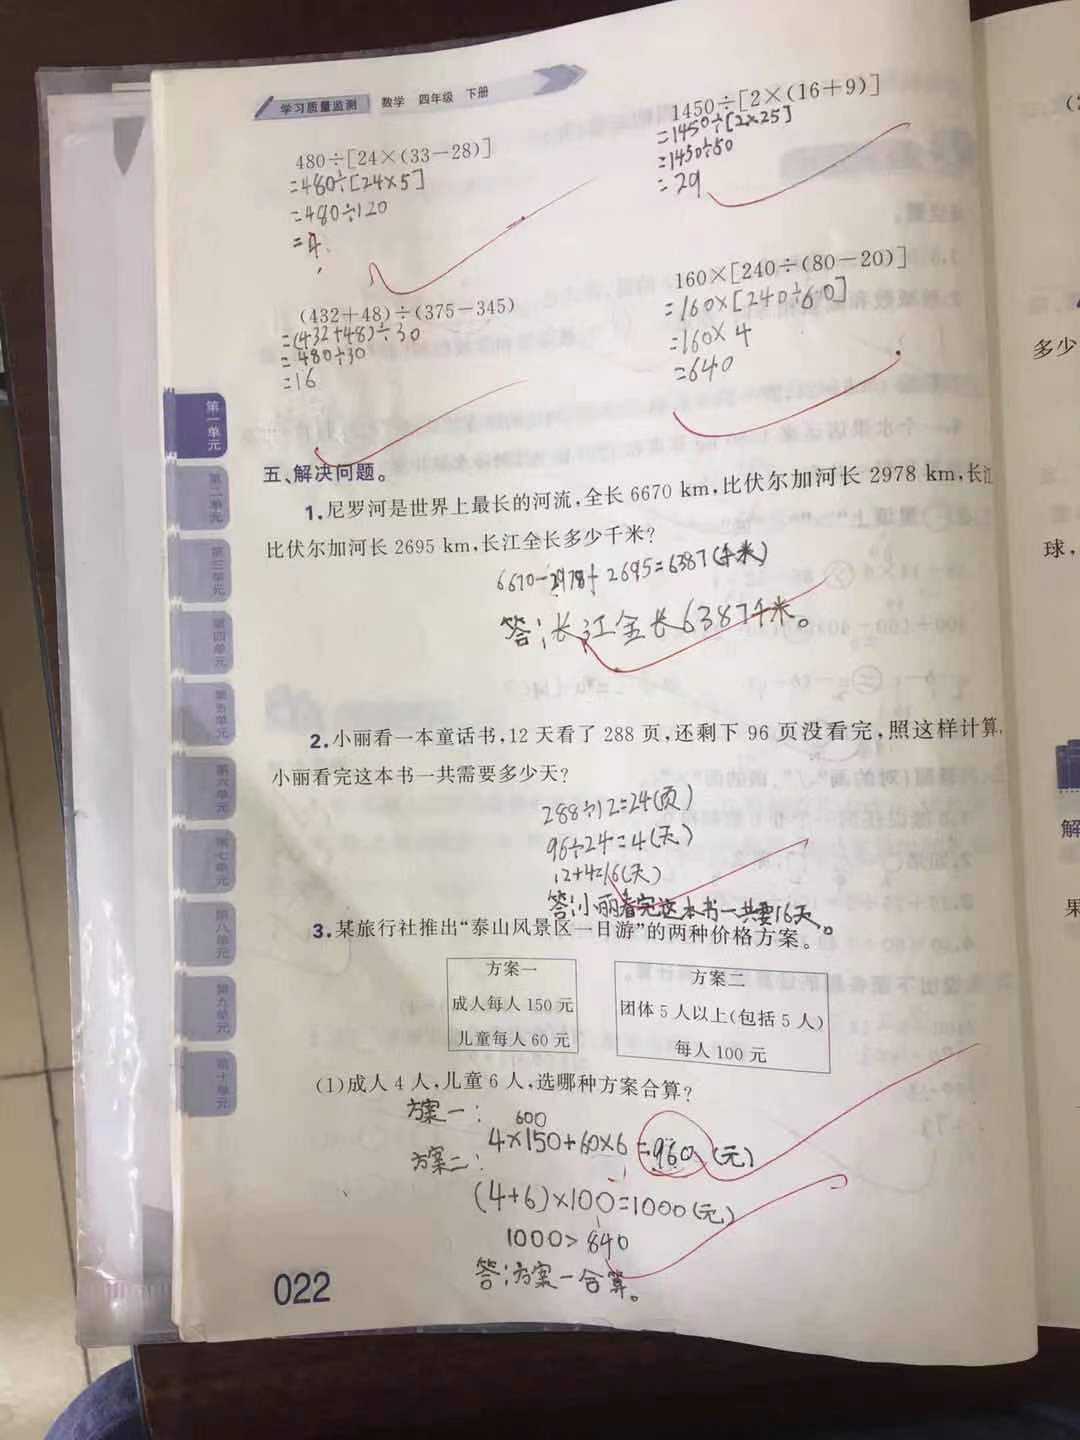 学习质量监测 数学 四年级 下册
480÷[24×(33-28)]
=480÷[24×5]
=480÷120
=4
1450÷[2×(16+9)]
=1450÷[2×25]
=1450÷50
=29
(432+48)÷(375-345)
=(432+48)÷30
=480÷30
=16
160×[240÷(80-20)]
=160×[240÷60]
=160×4
=640
第一单元
第二单元
第三单元
第四单元
第五单元
第六单元
第七单元
第八单元
第九单元
第十单元
五、解决问题。
1.尼罗河是世界上最长的河流,全长 6670 km,比伏尔加河长 2978 km,长江
比伏尔加河长 2695 km,长江全长多少千米?
6670-2978+2695=6387(千米)
答:长江全长6387千米。
2.小丽看一本童话书,12 天看了 288 页,还剩下 96 页没看完,照这样计算,
小丽看完这本书一共需要多少天?
288÷12=24(页)
96÷24=4(天)
12+4=16(天)
答:小丽看完这本书一共要16天。
3.某旅行社推出“泰山风景区一日游”的两种价格方案。
方案一
成人每人 150 元
儿童每人 60 元
方案二
团体 5 人以上(包括 5 人)
每人 100 元
(1)成人 4 人,儿童 6 人,选哪种方案合算?
方案一:
600
4×150+60×6=960(元)
方案二:
(4+6)×100=1000(元)
1000>840
答:方案一合算。
022
多少
球,
解
果